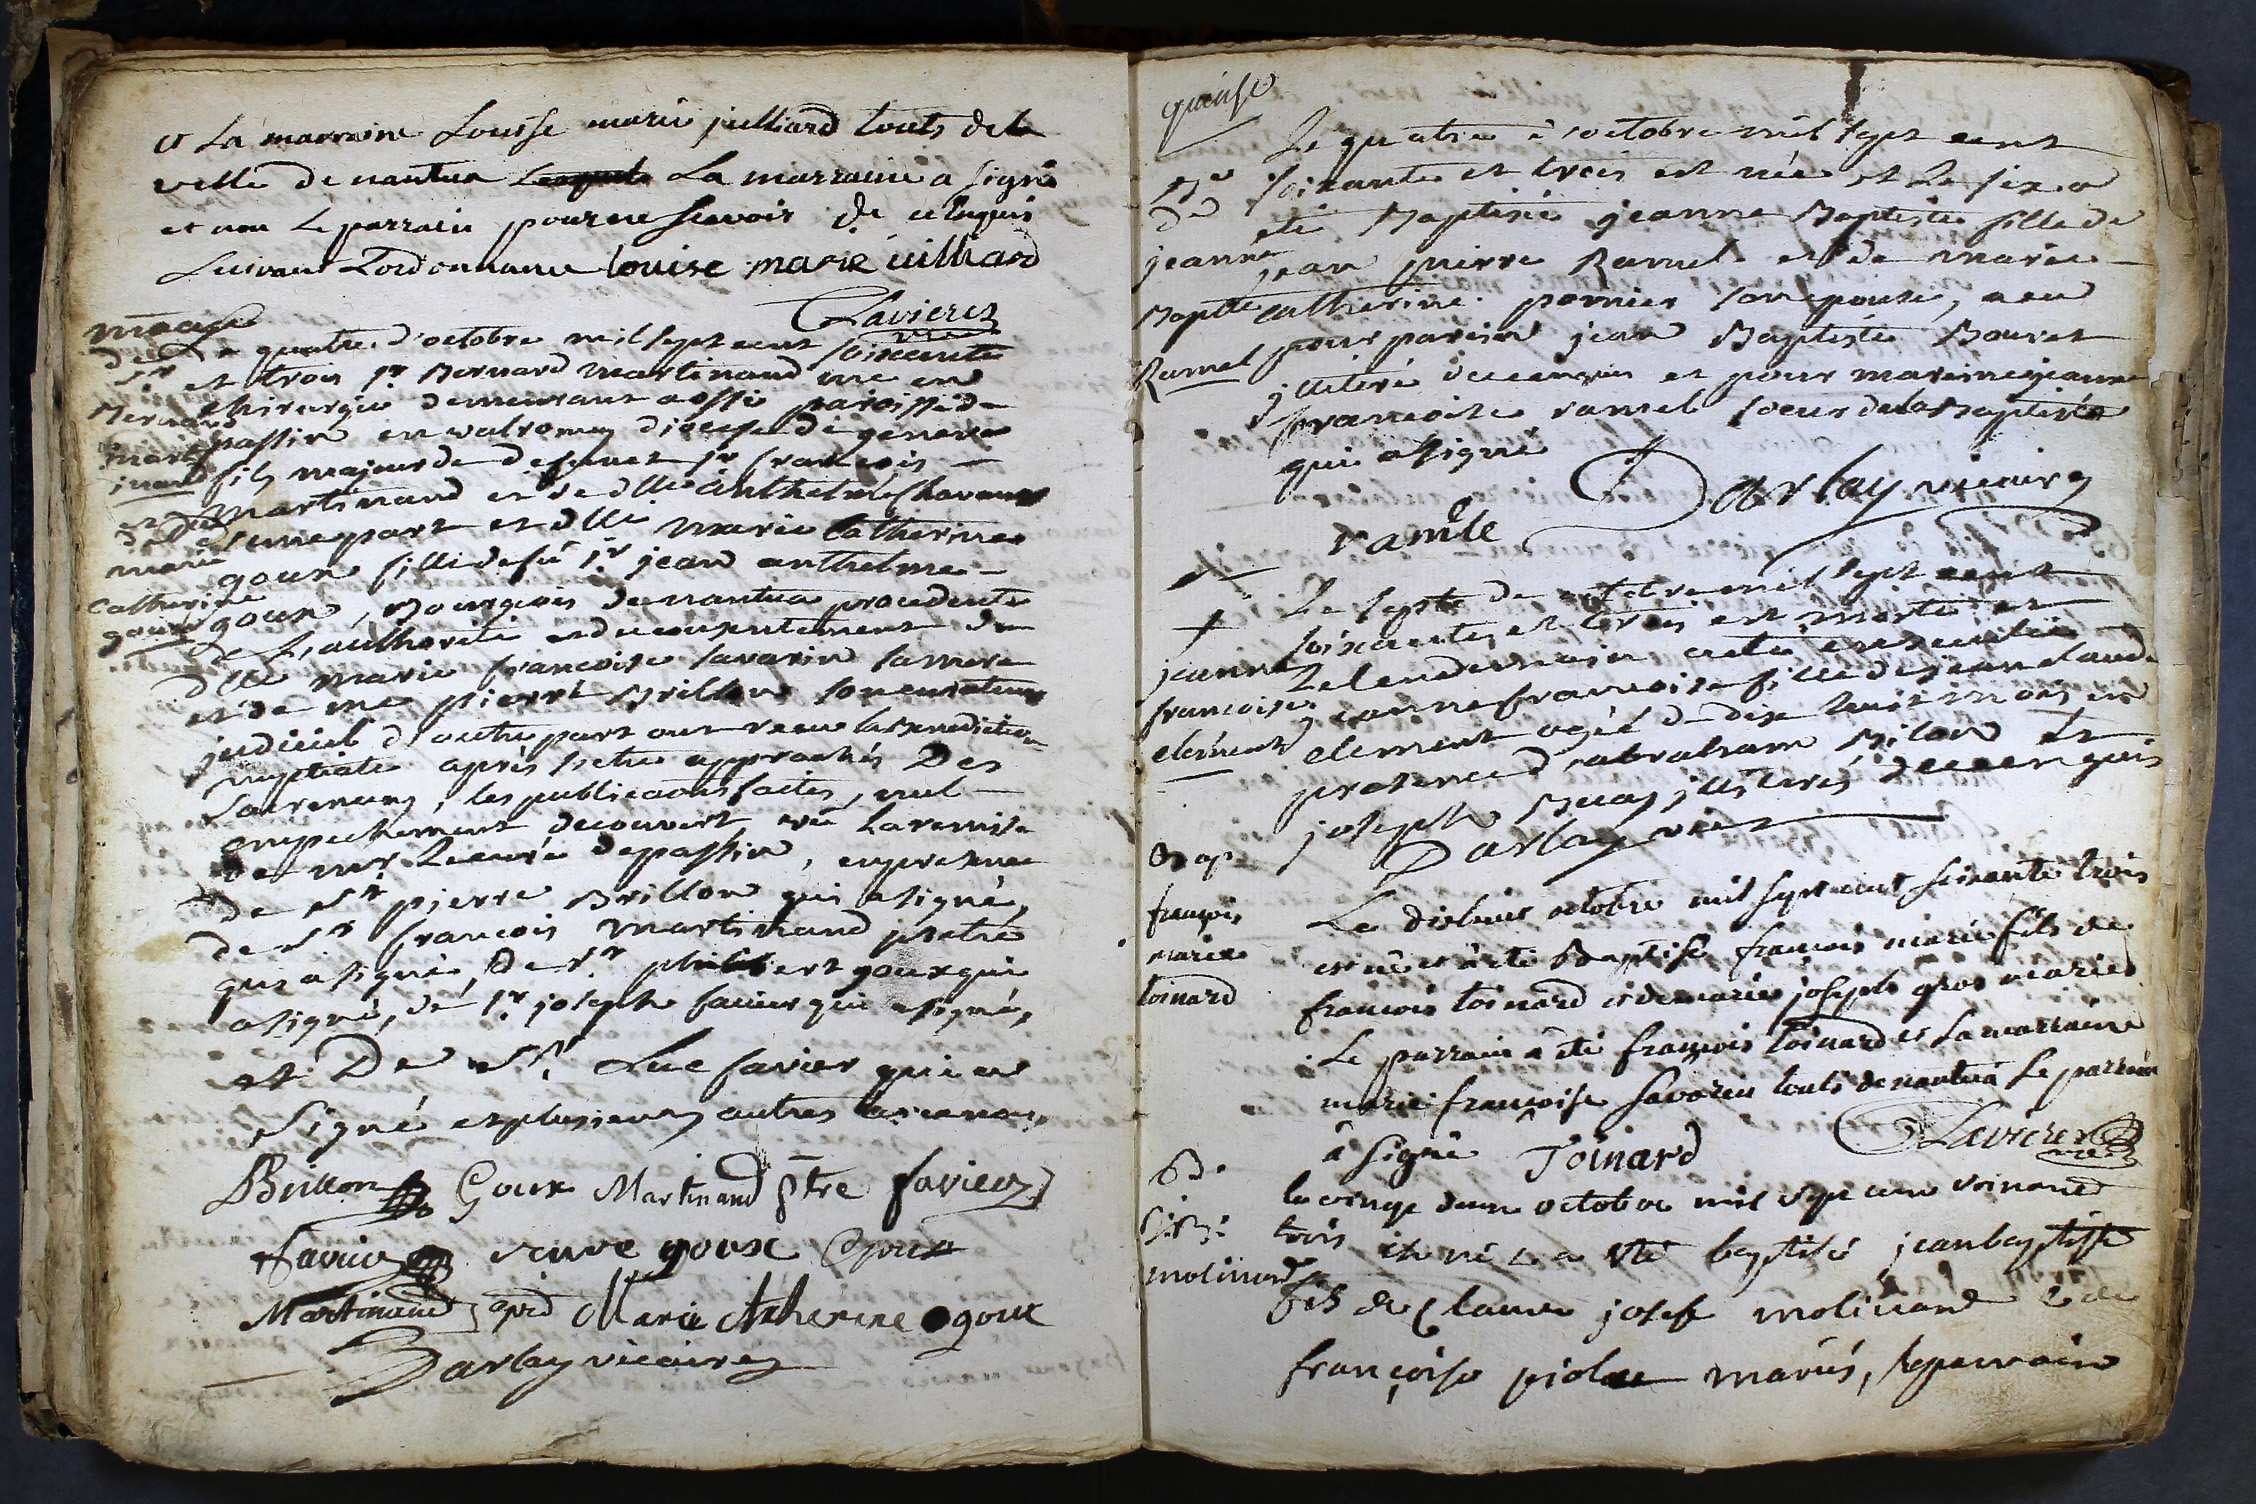 et La marraine Louise marie julliard touts de la
ville de nantua La marraine a signé
et non Le parrain pour ne scavoir de ce enquis
suivant Lordonnance louise marie iuilliard
Lavierez
mariage
de
Sr
Bernard
mart
inand
et
de dlle
marie
catherine
goux
Le quatre d'octobre mil sept cent soixante
et trois sr Bernard martinand me en
chirurgie demeurant a ossi paroisse de
passin en valromey diocese de geneve
fils majeur de defunct sr francois
martinand et de dlle anthelme chavanes
d'une part et dlle marie catherine
goux fille de fû sr jean anthelme
goux, Bourgeois de nantua procedente
de L'authorité et du consentement de
dlle marie francoise savarin sa mere
et de me pierre Brillon son curateur
judiciel d'autre part ont receu la benediction
nuptiale après s'etre approchés Des
Sacremens, les publicaons faites, nul
empechement decouvert vû la remise
de mr Le curé de passin, en presence
de Sr pierre Brillon qui a signé,
de Sr francois martinand pretre
qui a signé, De sr philibert goux qui
a signé, de sr joseph favier qui a signé,
et De Sr Luc favier qui a
signé et plusieurs autres
Brillon Goux Martinand ptre favier
favier veuve goux Goux
Martinand Marie Catherine goux
Darlay vicaire
quinse
Be
de
jeanne
Baptte
Ramel
Le quatre d'octobre mil sept cent
soixante et trois est née et Le six a
eté Baptisée jeanne Baptiste fille de
jean pierre Ramel et de marie
catherine pornier son epouse, a eu
pour parein jean Baptiste Bouvet
illiteré de ce enquis et pour mareine jeanne
francoise ramel soeur de la Baptisée
qui a signé
Darlay vicaire
ramele
+
jeanne
francoise
clement
Le septe de octobre mil sept cent
soixante et trois est morte et
Le lendemain a eté ensevelie
jeanne francoise fille de jean claude
clement agée de dix huit mois en
presence d'abraham Milon et
joseph Buay illiterés de ce enquis
Darlay vicr
Bap
françois
marie
toinard
Le dixhuit octobre mil sept cent soixante trois
est né et à eté Baptisé françois marie fils de
francois toinard et de marie joseph gros mariés
Le parrain a été françois toinard et La marraine
marie françoise Savarin touts de nantua Le parrain
à signé Toinard
Lavierez
B.
j: B:
molinard
le vinge dun octobre mil sept cen soixante
trois est né & a eté baptisé jean baptiste
fils de Claude josef molinard & de
françoise piolat mariés, le parrain